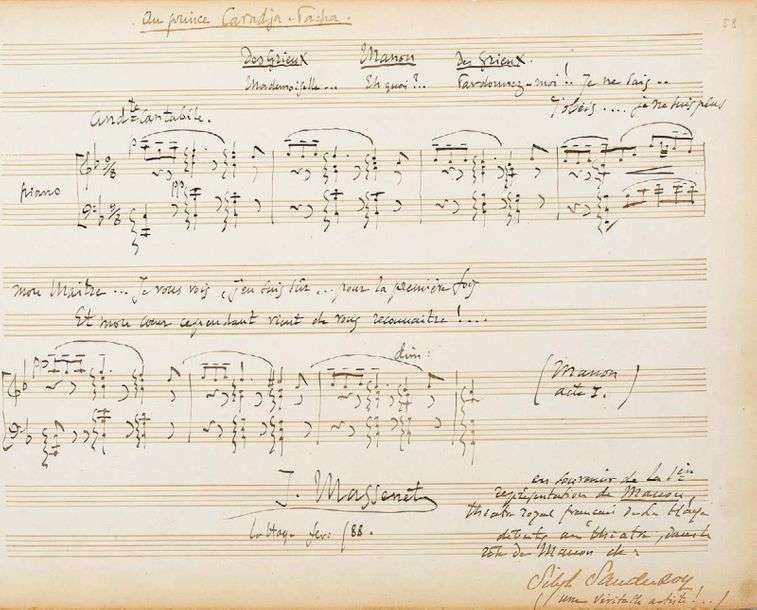 Au prince Caradja-Pacha.
58
Des Grieux Manon Des Grieux
Mademoiselle... Eh quoi?.. Pardonnez-moi! Je ne sais..
J'obéis.... je ne suis plus
Andte Cantabile.
piano
9/8
pp
9/8
mon Maître... Je vous vois, j'en suis sûr... pour la première fois
Et mon cœur cependant vient de vous reconnaitre!...
p
dim:
(Manon
acte I.)
J. Massenet
La Haye fev: /88.
en souvenir de la 1ère
représentation de Manon,
théâtre royal français de La Haye
débuts au théâtre, dans le
rôle de Manon de:
Sibyl Sanderson
(une véritable artiste!..)